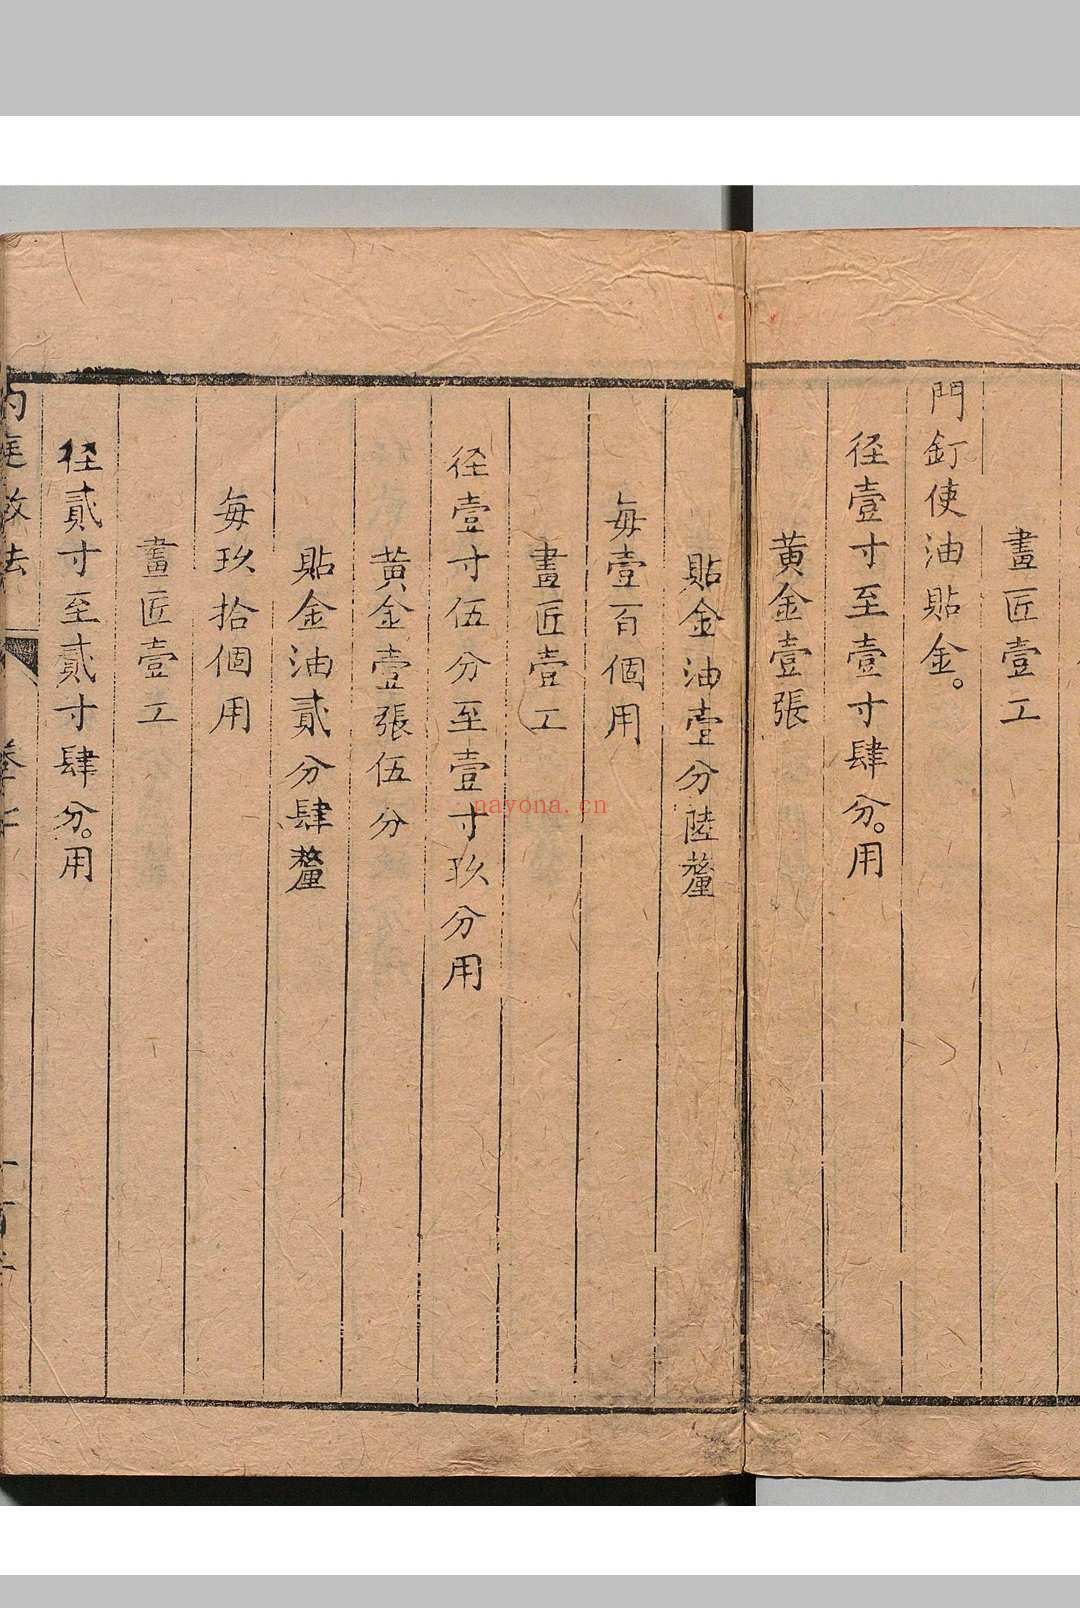 畫匠壹工
門釘使油貼金。
径壹寸至壹寸肆分。用
黄金壹張
貼金油壹分陸釐
每壹百個用
畫匠壹工
径壹寸伍分至壹寸玖分用
黄金壹張伍分
貼金油貳分肆釐
每玖拾個用
畫匠壹工
径貳寸至貳寸肆分。用
nayona.cn